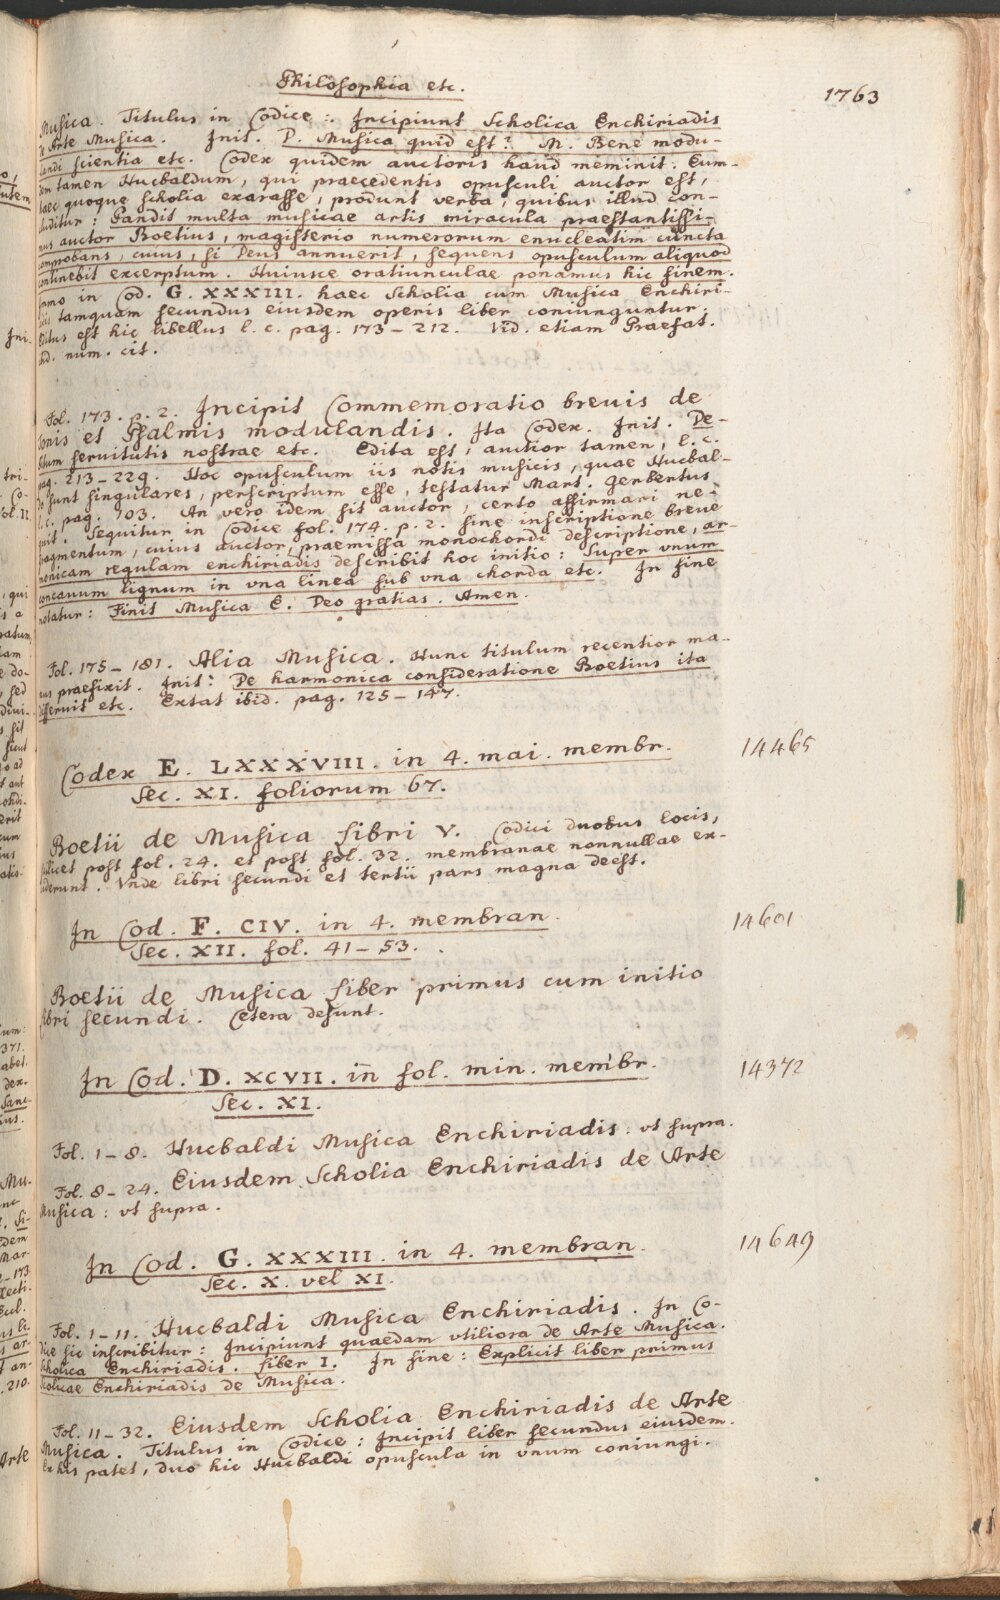 Philosophia etc.
1763
Musica. Titulus in Codice: Incipiunt Scholica Enchiriadis
de Arte Musica. Init. D. Musica quid est? M. Bene modu-
landi scientia etc. Codex quidem auctoris haud meminit. Eum-
dem tamen Hucbaldum, qui praecedentis opusculi auctor est,
haec quoque Scholia exarasse, produnt verba, quibus illud con-
cluditur: Pandit multa musicae artis miracula praestantissi-
mus auctor Boetius, magisterio numerorum enucleatim cuncta
comprobans, cuius, si Deus annuerit, sequens opusculum aliquod
continebit excerptum. Huiusce oratiunculae ponamus hic finem.
Immo in Cod. G. XXXIII. haec Scholia cum Musica Enchiri-
adis tamquam secundus eiusdem operis liber coniunguntur.
Editus est hic libellus l. c. pag. 173-212. Vid. etiam Praefat.
ad. num. cit.
Fol. 173. p. 2. Incipit Commemoratio brevis de
Tonis et Psalmis modulandis. Ita Codex. Init. De-
bitum servitutis nostrae etc. Edita est, auctior tamen, l. c.
pag. 213-229. Hoc opusculum iis notis musicis, quae Hucbal-
do sunt singulares, perscriptum esse, testatur Mart. Gerbertus
l. c. pag. 103. An vero idem sit auctor, certo affirmari ne-
quit. Sequitur in Codice fol. 174. p. 2. sine inscriptione breve
fragmentum, cuius auctor, praemissa monochordi descriptione, ar-
monicam regulam enchiriadis describit hoc initio: Super vnum
concavum lignum in vna linea sub vna chorda etc. In fine
notatur: Finit Musica E. Deo gratias. Amen.
Fol. 175-181. Alia Musica. Hunc titulum recentior ma-
nus praefixit. Init: De harmonica consideratione Boetius ita
disseruit etc. Extat ibid. pag. 125-147.
Codex E. LXXXVIII. in 4. mai. membr.
14465
Sec. XI. foliorum 67.
Boetii de Musica Libri V. Codici duobus locis,
scilicet post fol. 24. et post fol. 32. membranae nonnullae ex-
ciderunt. Vnde libri secundi et tertii pars magna deest.
In Cod. F. CIV. in 4. membran.
14601
Sec. XII. fol. 41-53.
Boetii de Musica Liber primus cum initio
libri secundi. Cetera desunt.
In Cod. D. XCVII. in fol. min. membr.
14372
Sec. XI.
Fol. 1-8. Hucbaldi Musica Enchiriadis: vt supra.
Fol. 8-24. Eiusdem Scholia Enchiriadis de Arte
Musica: vt supra.
In Cod. G. XXXIII. in 4. membran.
14649
Sec. X. vel XI.
Fol. 1-11. Hucbaldi Musica Enchiriadis. In Co-
dice sic inscribitur: Incipiunt quaedam vtiliora de Arte Musica.
Scholica Enchiriadis. Liber I. In fine: Explicit liber primus
Scolicae Enchiriadis de Musica.
Fol. 11-32. Eiusdem Scholia Enchiriadis de Arte
Musica. Titulus in Codice: Incipit liber secundus eiusdem.
Ex his patet, duo hic Hucbaldi opuscula in vnum coniungi.